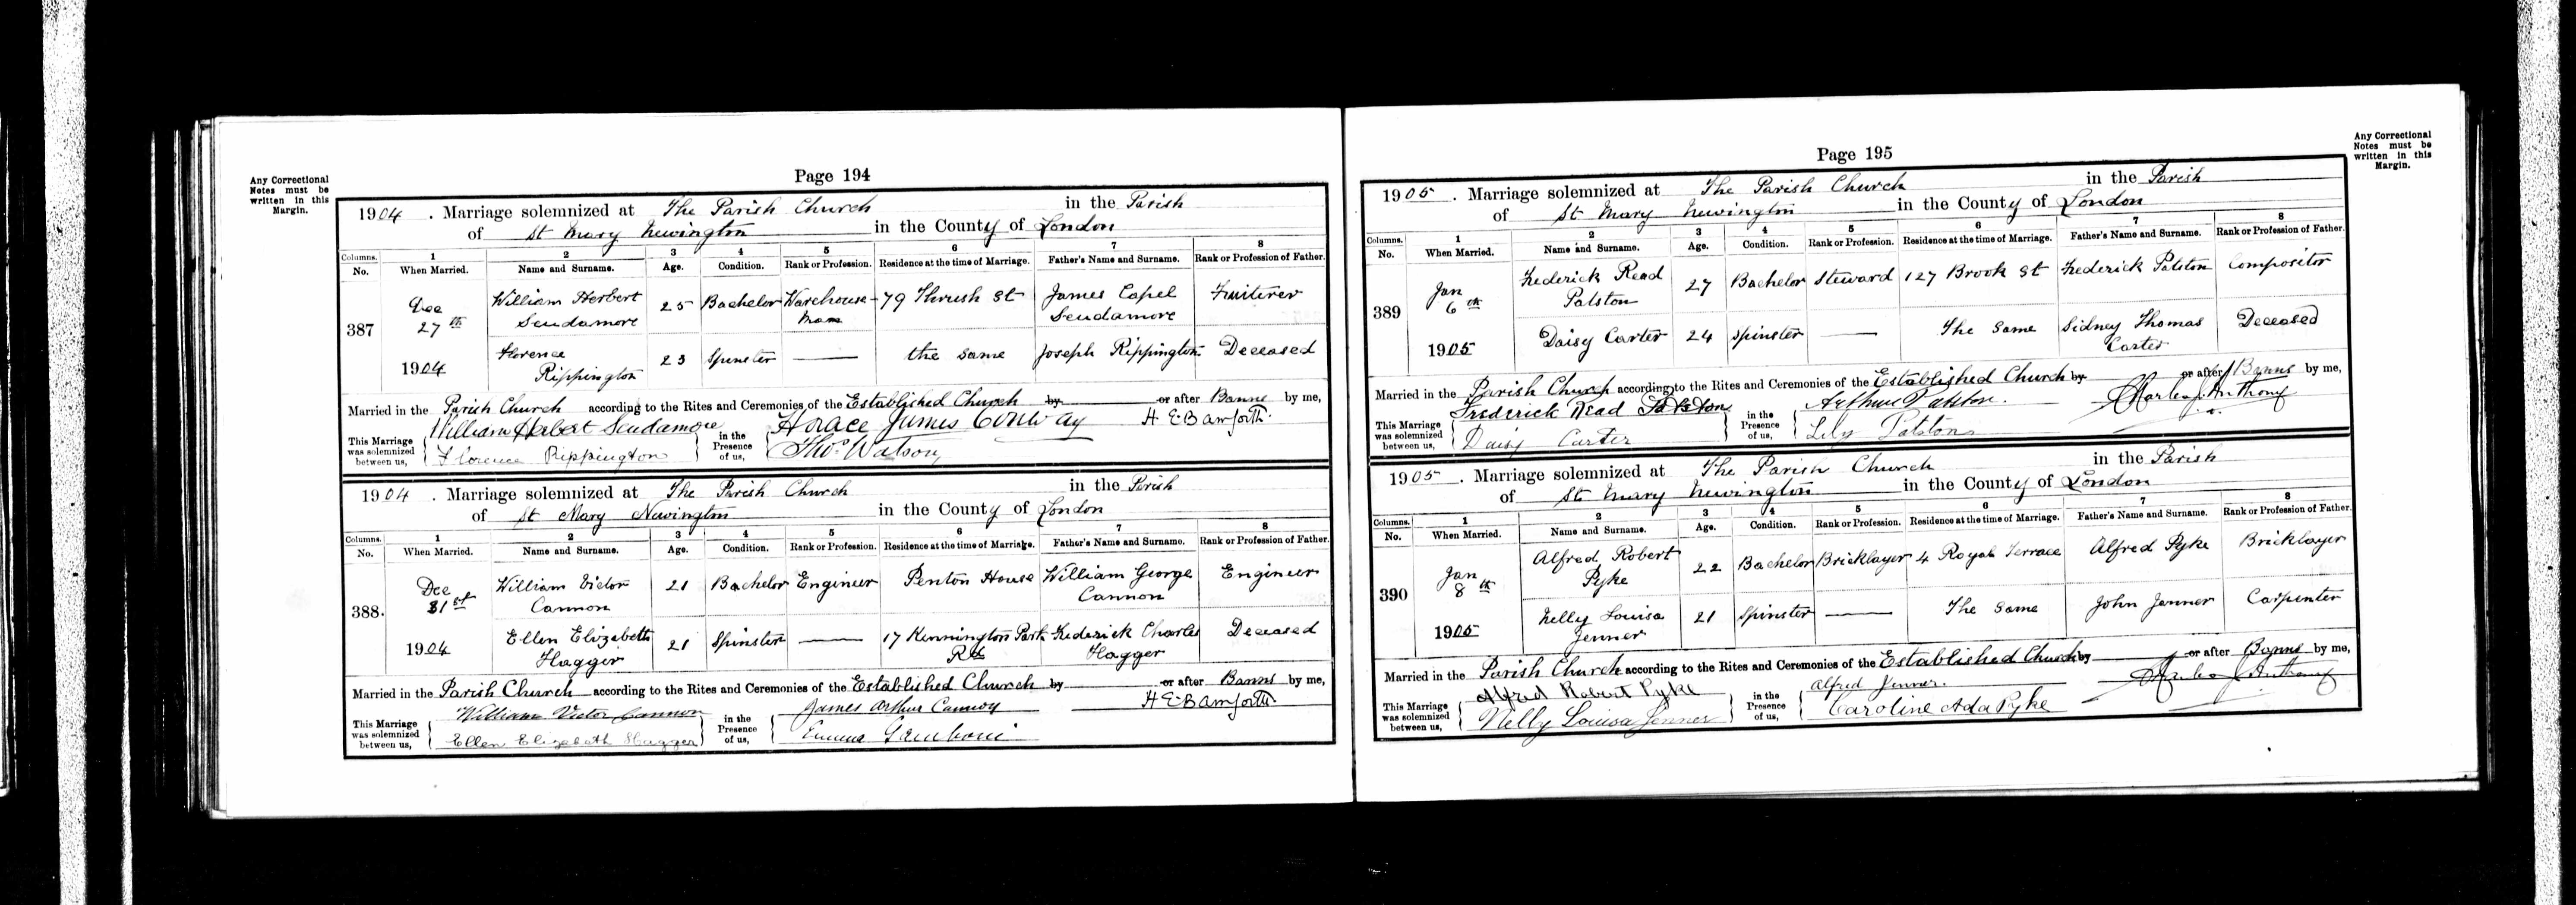 Page 194
Any Correctional
Notes must be
written in this
Margin.
1904 . Marriage solemnized at The Parish Church in the Parish
of St Mary Newington in the County of London
Columns. 1 2 3 4 5 6 7 8
No. When Married. Name and Surname. Age. Condition. Rank or Profession. Residence at the time of Marriage. Father's Name and Surname. Rank or Profession of Father.
387 Dec 27th 1904 William Herbert Scudamore 25 Bachelor Warehouse-man 79 Thrush St James Capel Scudamore Fruiterer
Florence Rippington 23 Spinster the same Joseph Rippington Deceased
Married in the Parish Church according to the Rites and Ceremonies of the Established Church by or after Banns by me,
This Marriage was solemnized between us, William Herbert Scudamore in the Presence of us, Horace James Conway H. E. Bamforth.
Florence Rippington Thos. Watson
1904 . Marriage solemnized at The Parish Church in the Parish
of St Mary Newington in the County of London
Columns. 1 2 3 4 5 6 7 8
No. When Married. Name and Surname. Age. Condition. Rank or Profession. Residence at the time of Marriage. Father's Name and Surname. Rank or Profession of Father.
388. Dec 31st 1904 William Victor Cannon 21 Bachelor Engineer Penton House William George Cannon Engineer
Ellen Elizabeth Hagger 21 Spinster 17 Kennington Park Rd Frederick Charles Hagger Deceased
Married in the Parish Church according to the Rites and Ceremonies of the Established Church by or after Banns by me,
This Marriage was solemnized between us, William Victor Cannon in the Presence of us, James Arthur H. E. Bamforth
Ellen Elizabeth Hagger
Page 195
Any Correctional
Notes must be
written in this
Margin.
1905 . Marriage solemnized at The Parish Church in the Parish
of St Mary Newington in the County of London
Columns. 1 2 3 4 5 6 7 8
No. When Married. Name and Surname. Age. Condition. Rank or Profession. Residence at the time of Marriage. Father's Name and Surname. Rank or Profession of Father.
389 Jan 6th 1905 Frederick Read Palston 27 Bachelor Steward 127 Brook St Frederick Palston Compositor
Daisy Carter 24 Spinster The same Sidney Thomas Carter Deceased
Married in the Parish Church according to the Rites and Ceremonies of the Established Church by or after Banns by me,
This Marriage was solemnized between us, Frederick Read Palston in the Presence of us, Arthur Palston. Charles J. Anthony
Daisy Carter Lily Palston
1905 . Marriage solemnized at The Parish Church in the Parish
of St Mary Newington in the County of London
Columns. 1 2 3 4 5 6 7 8
No. When Married. Name and Surname. Age. Condition. Rank or Profession. Residence at the time of Marriage. Father's Name and Surname. Rank or Profession of Father.
390 Jan 8th 1905 Alfred Robert Pyke 22 Bachelor Bricklayer 4 Royal Terrace Alfred Pyke Bricklayer
Nelly Louisa Jenner 21 Spinster The same John Jenner Carpenter
Married in the Parish Church according to the Rites and Ceremonies of the Established Church by or after Banns by me,
This Marriage was solemnized between us, Alfred Robert Pyke in the Presence of us, Alfred Jenner. Charles J. Anthony
Nelly Louisa Jenner Caroline Ada Pyke